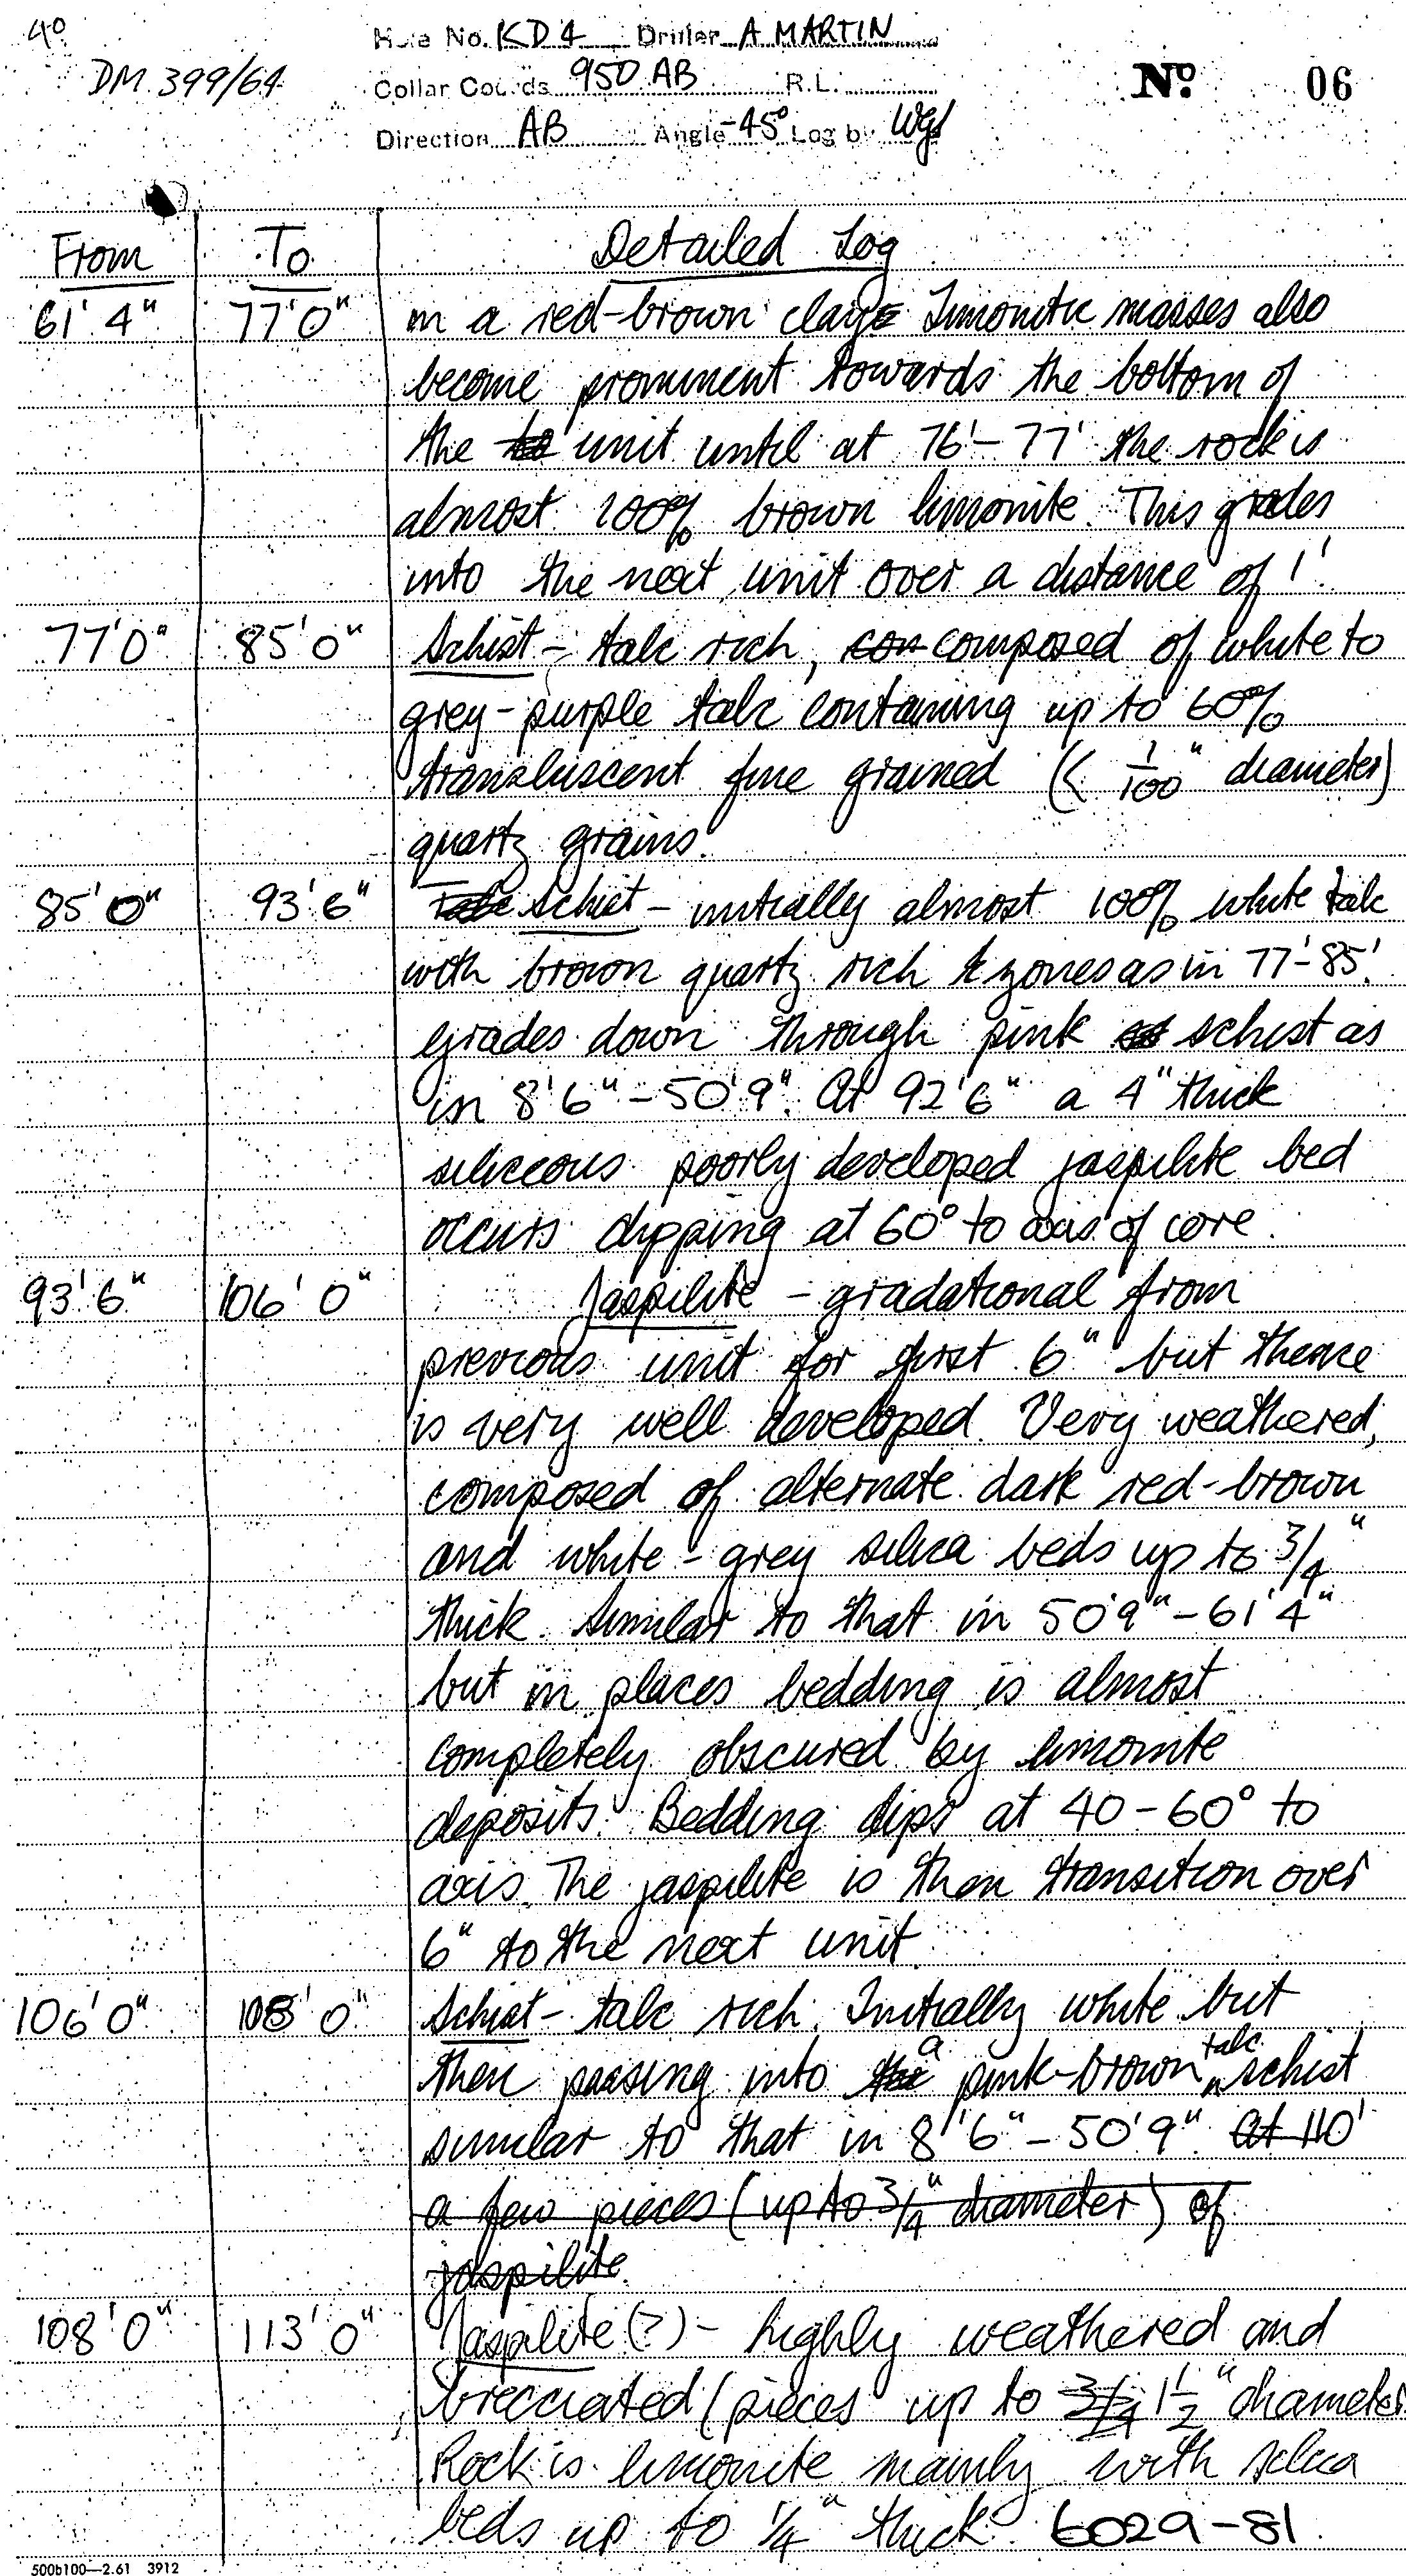 40
DM. 399/64
Hole No. KD4 Driller A MARTIN
Collar Coords 950 AB R.L.
Direction AB Angle -45° Log by
No. 06
From To Detailed Log
61' 4" 77'0" in a red-brown clay. Limonitic masses also
become prominent towards the bottom of
the unit until at 76'-77' the rock is
almost 100% brown limonite. This grades
into the next unit over a distance of 1'.
77'0" 85'0" Schist - talc rich, composed of white to
grey-purple talc containing up to 60%
transluscent fine grained (< 1/100" diameter)
quartz grains.
85'0" 93'6" Schist - initially almost 100% white talc
with brown quartz rich zones as in 77'-85'.
Grades down through pink schist as
in 8'6" - 50'9". At 92'6" a 4" thick
siliceous poorly developed jaspilite bed
occurs dipping at 60° to axis of core.
93'6" 106'0" Jaspilite - gradational from
previous unit for first 6" but thence
is very well developed. Very weathered,
composed of alternate dark red-brown
and white-grey silica beds up to 3/4"
thick. Similar to that in 50'9" - 61'4"
but in places bedding is almost
completely obscured by limonite
deposits. Bedding dips at 40-60° to
axis. The jaspilite is then transition over
6" to the next unit.
106'0" 108'0" Schist - talc rich. Initially white but
then passing into a pink-brown talc schist
similar to that in 8'6" - 50'9". At 110'
a few pieces (up to 3/4" diameter) of
jaspilite.
108'0" 113'0" Jaspilite (?) - highly weathered and
brecciated (pieces up to 3/4 1 1/2" diameter
Rock is limonite mainly with silica
beds up to 1/4" thick. 6029-81
500b100—2.61 3912